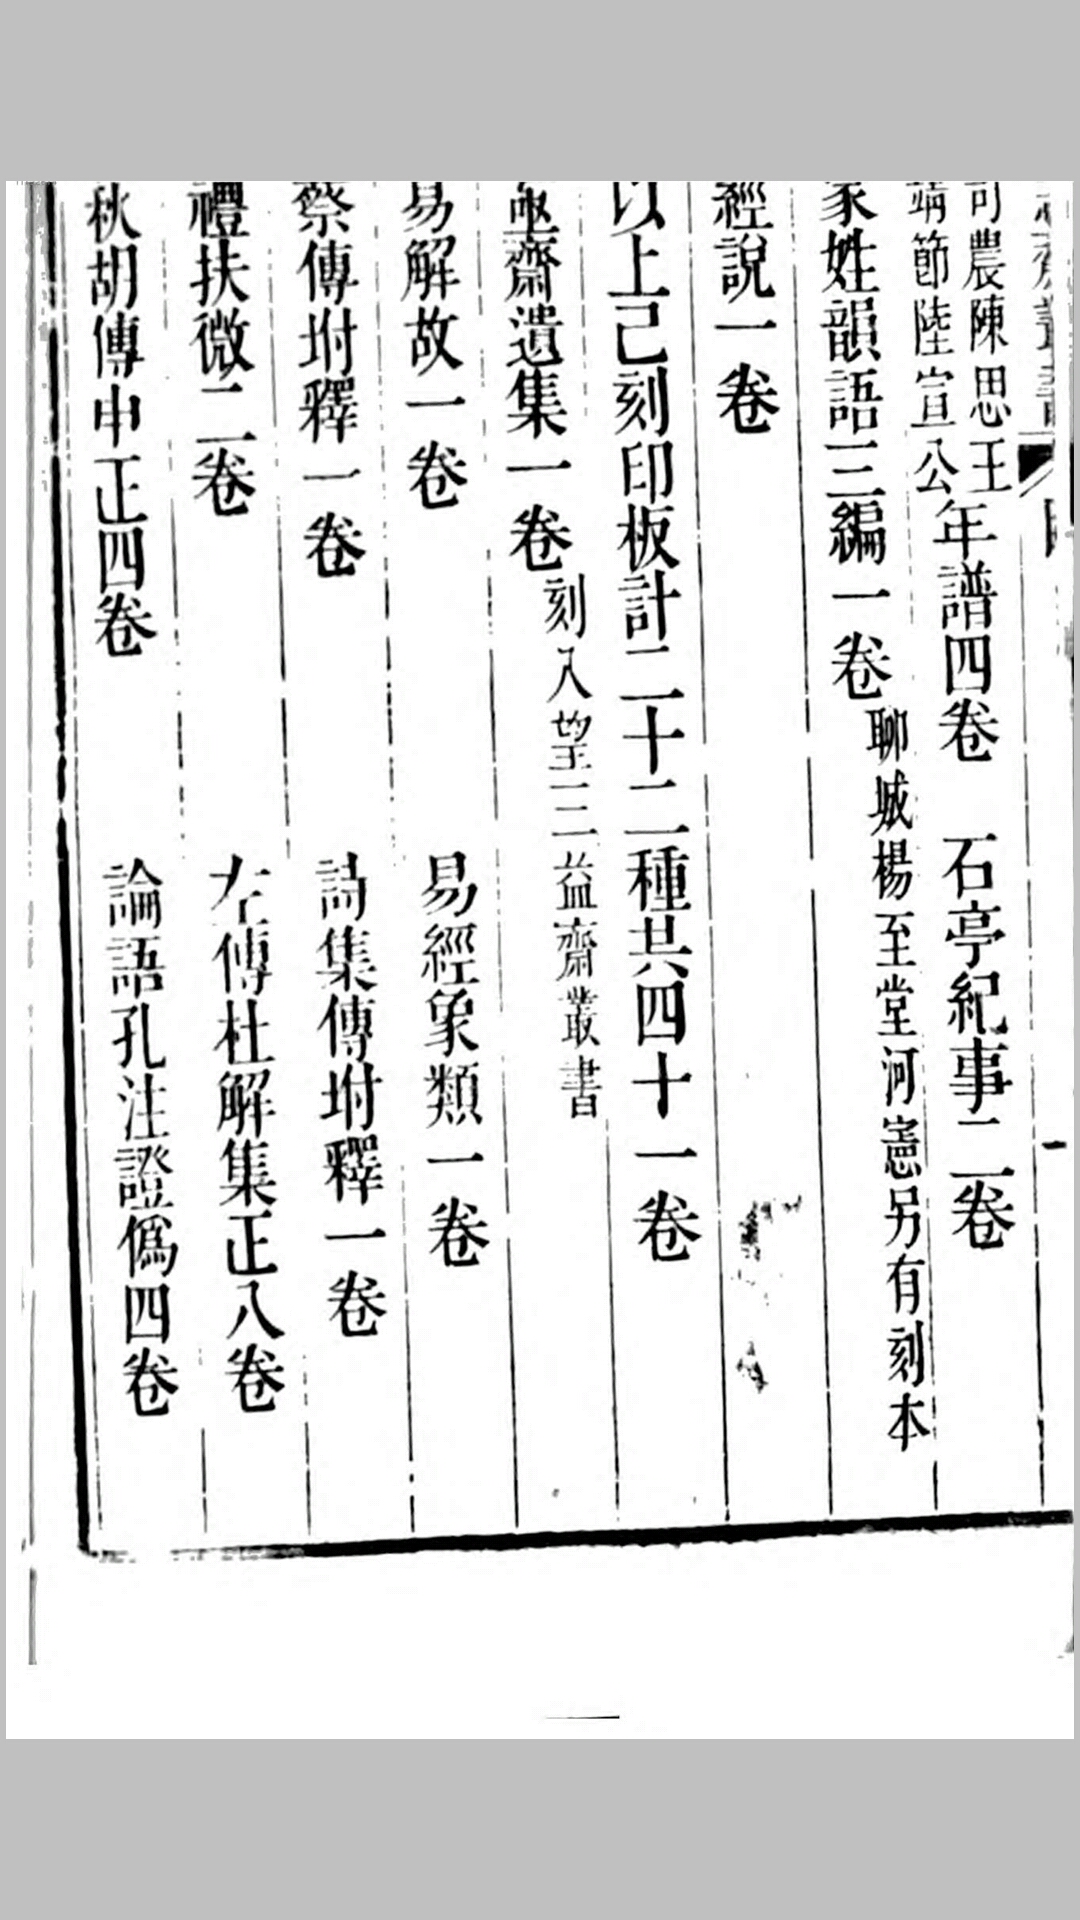 司農陳思王
靖節陸宣公年譜四卷　石亭紀事二卷
家姓韻語三編一卷聊城楊至堂河憲另有刻本
經說一卷
以上已刻印板計二十二種共四十一卷
亟齋遺集一卷刻入望三益齋叢書
易解故一卷　易經象類一卷
蔡傳坿釋一卷　詩集傳坿釋一卷
禮扶微二卷　左傳杜解集正八卷
秋胡傳申正四卷　論語孔注證僞四卷